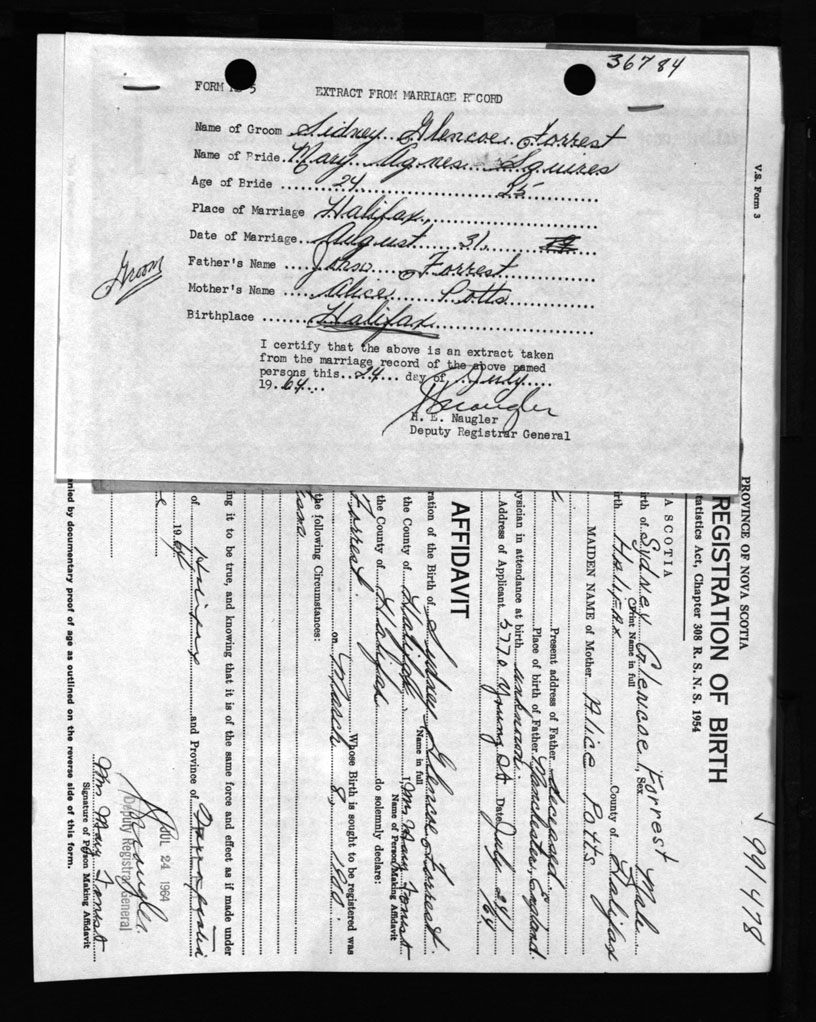 36784
FORM
EXTRACT FROM MARRIAGE RECORD
Name of Groom Sidney Glencoe Forrest
Name of Bride Mary Agnes Squires
Age of Bride 24 25
Place of Marriage Halifax
Date of Marriage August 31
Father's Name Forrest
Mother's Name Alice Potts
Birthplace Halifax
Groom
I certify that the above is an extract taken
from the marriage record of the above named
persons this 24 day of July
1964
H. E. Naugler
Deputy Registrar General
V.S. Form 3
991478
PROVINCE OF NOVA SCOTIA
REGISTRATION OF BIRTH
tatistics Act, Chapter 308 R. S. N. S. 1954
A SCOTIA
rth of Sydney Glencoe Forrest Sex Male
(Print Name in full
rth Halifax County of Halifax
MAIDEN NAME of Mother Alice Potts
Present address of Father deceased
Place of birth of Father Manchester, England
ysician in attendance at birth unknown
Address of Applicant 5770 Young St Date July 24/64
AFFIDAVIT
ration of the Birth of Sydney Glencoe Forrest
Name in full
the County of Halifax I, Mrs Mary Forrest
Name of Person Making Affidavit
the County of Halifax do solemnly declare:
Whose Birth is sought to be registered was
Forrest on March 8, 1910
the following Circumstances:
ing it to be true, and knowing that it is of the same force and effect as if made under
of Halifax and Province of Nova Scotia
1964
JUL 24 1964
Deputy Registrar General
Mrs Mary Forrest
Signature of Person Making Affidavit
anied by documentary proof of age as outlined on the reverse side of this form.